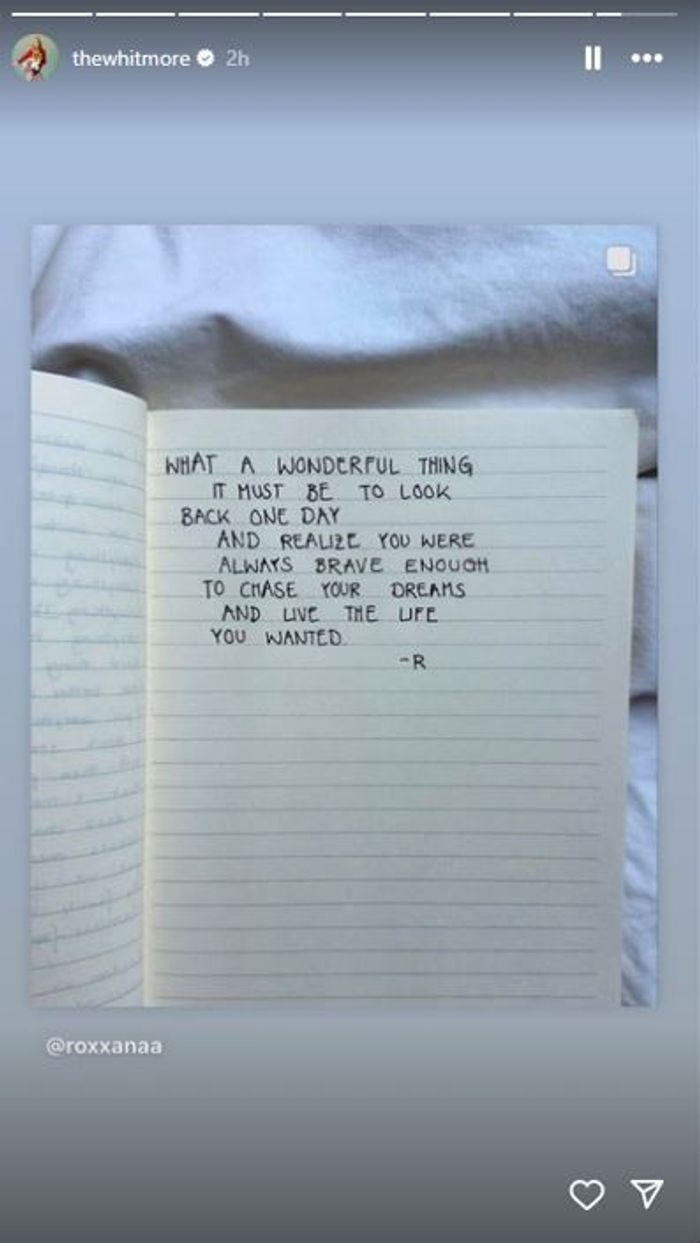 thewhitmore 2h
WHAT A WONDERFUL THING
IT MUST BE TO LOOK
BACK ONE DAY
AND REALIZE YOU WERE
ALWAYS BRAVE ENOUGH
TO CHASE YOUR DREAMS
AND LIVE THE LIFE
YOU WANTED.
-R
@roxxanaa